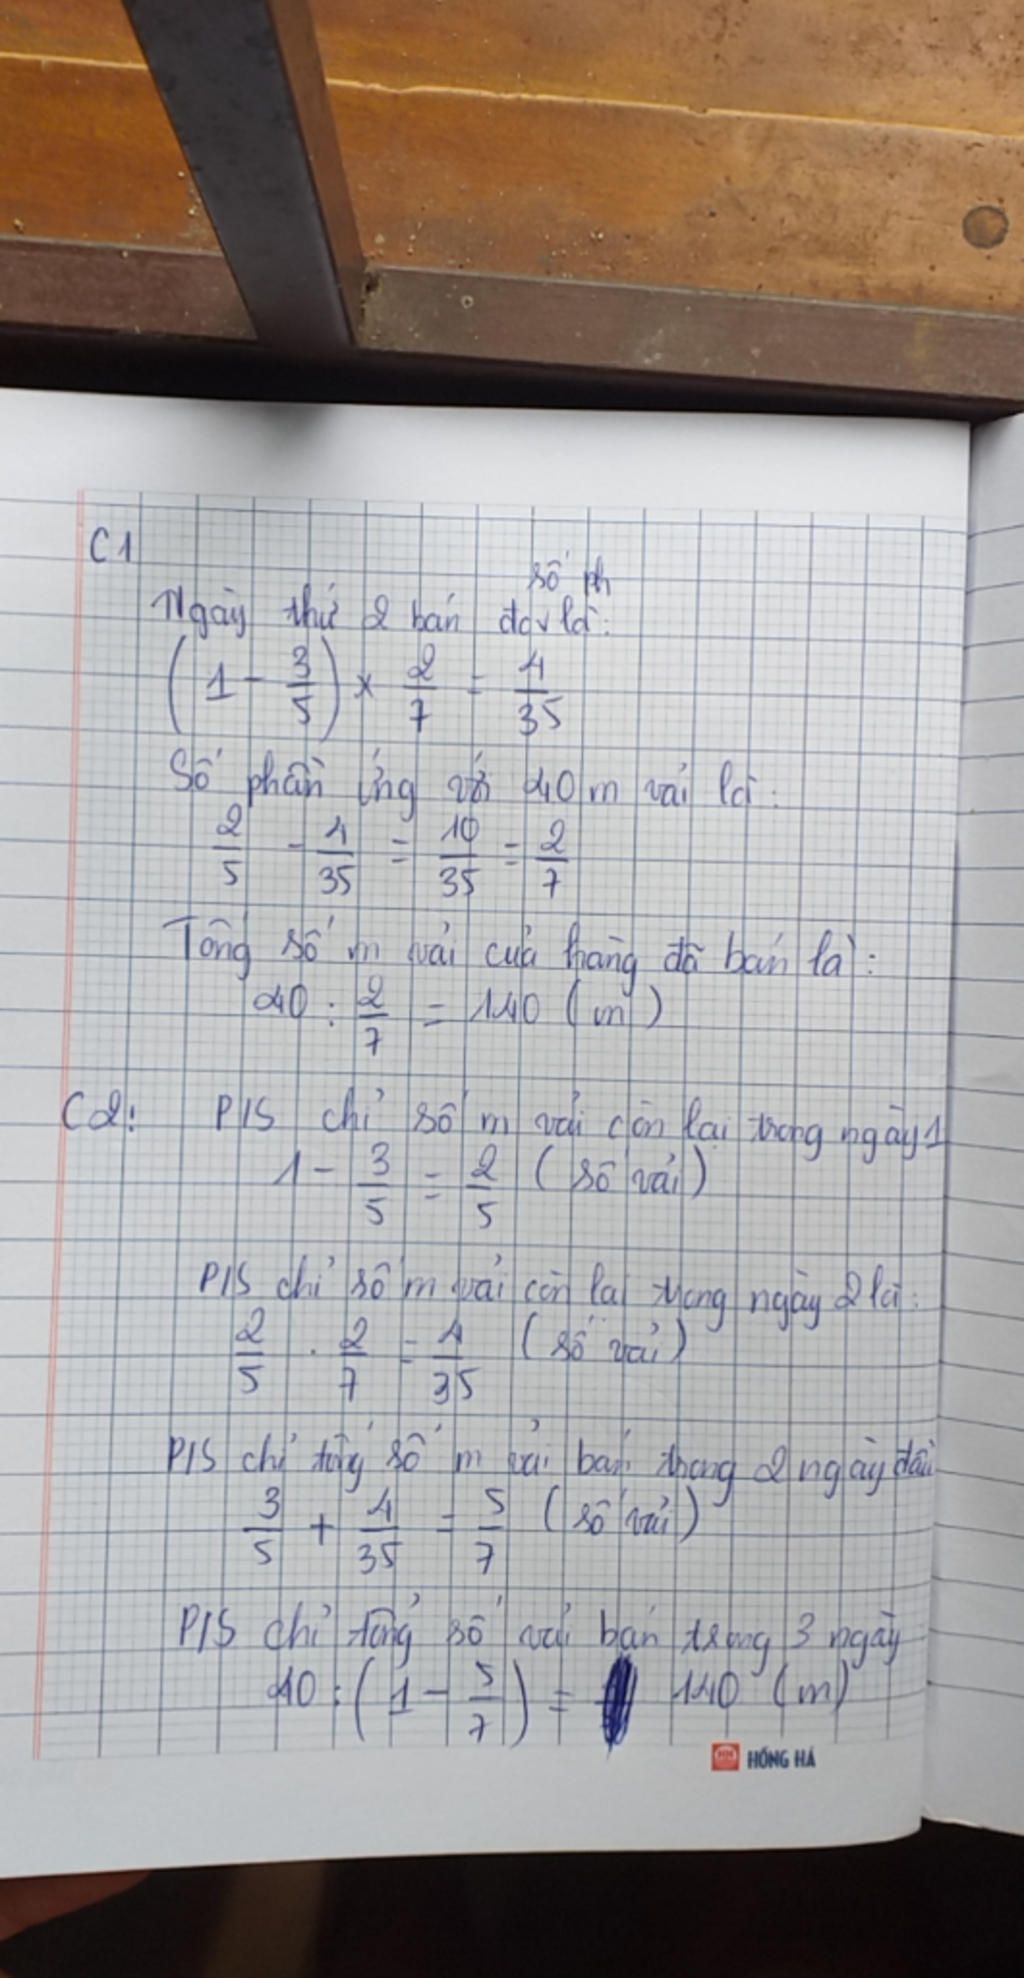 C1
số ph
Ngày thứ 2 bán được là:
(1 - 3/5) × 2/7 = 4/35
Số phần ứng với 40 m vải là:
2/5 - 4/35 = 10/35 = 2/7
Tổng số m vải cửa hàng đã bán là:
40 : 2/7 = 140 (m)
C2: P/S chỉ số m vải còn lại trong ngày 1
1 - 3/5 = 2/5 (số vải)
P/S chỉ số m vải còn lại trong ngày 2 là:
2/5 . 2/7 = 4/35 (số vải)
P/S chỉ tổng số m vải bán trong 2 ngày đầu
3/5 + 4/35 = 5/7 (số vải)
P/S chỉ tổng số vải bán trong 3 ngày
40 : (1 - 5/7) = 140 (m)
HỒNG HÀ